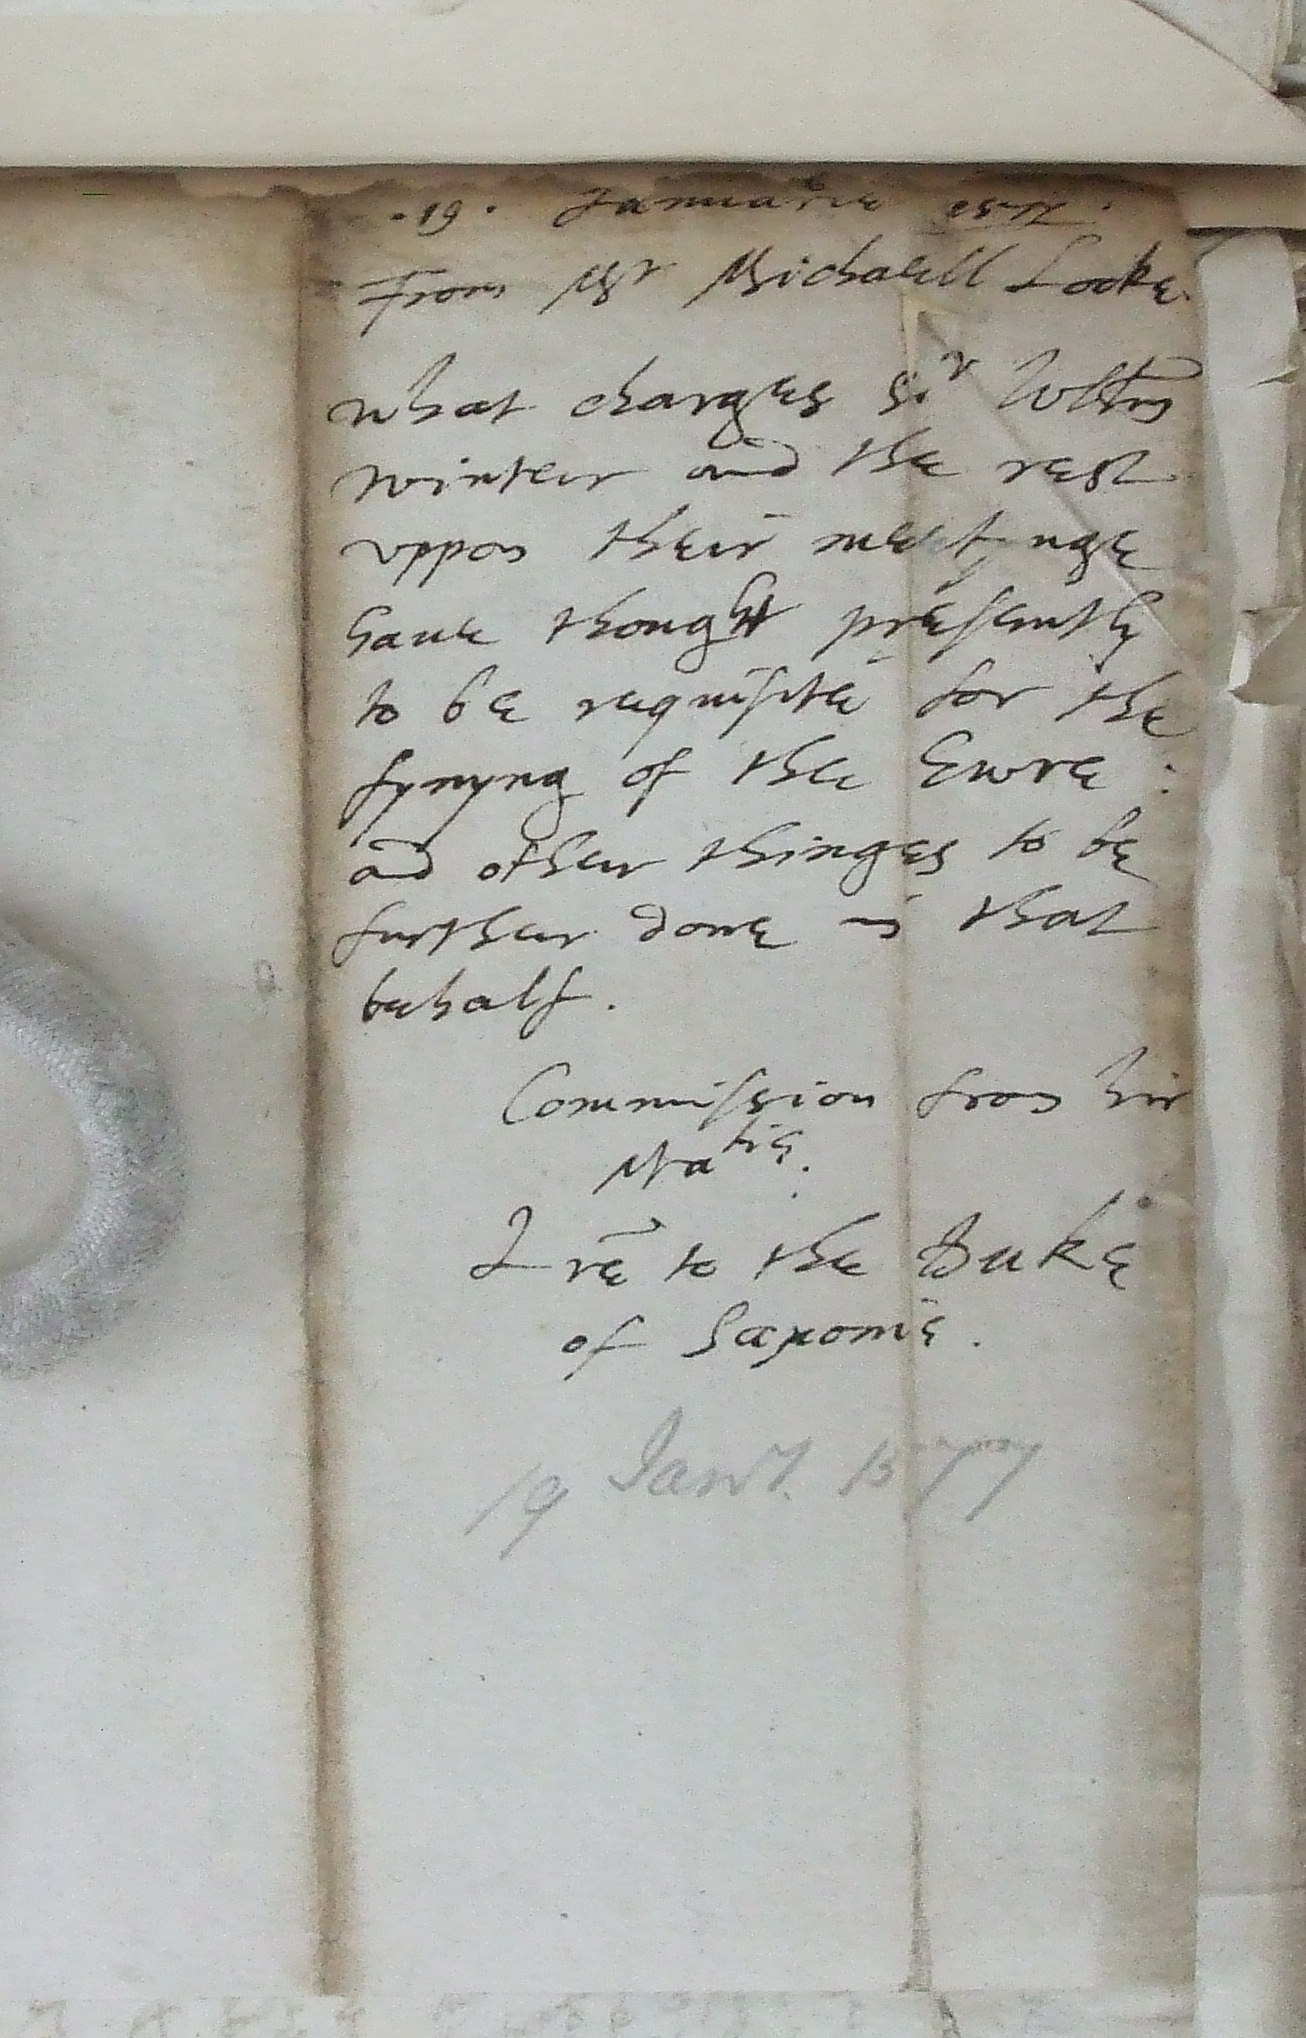 .19. Januarie 1577.
From Mr Michaell Locke.
what charges Sir Willm
winter and the rest
vppon their meetynge
haue thought presently
to be requisite for the
fynyng of the Ewre :
and other thinges to be
further done in that
behalf.
Commission from hir
Matie.
Lre to the Duke
of Saxonie.
19 Jany. 1577